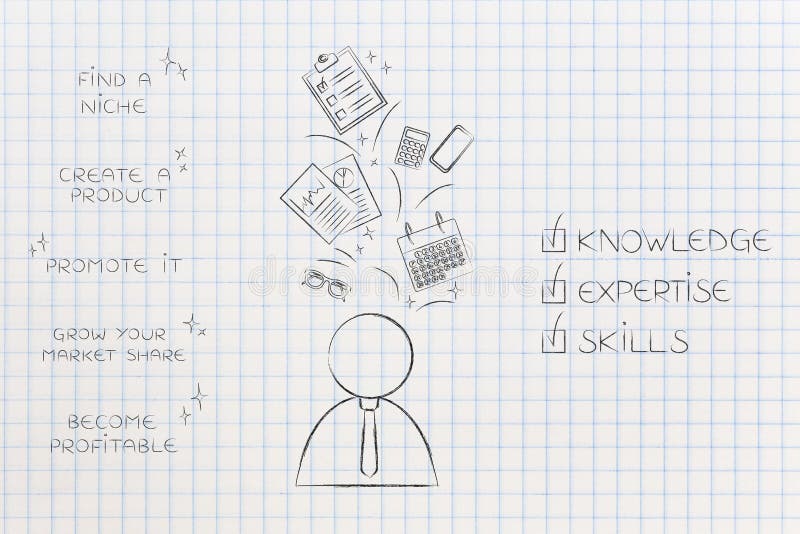 FIND A
NICHE
CREATE A
PRODUCT
PROMOTE IT
GROW YOUR
MARKET SHARE
BECOME
PROFITABLE
KNOWLEDGE
EXPERTISE
SKILLS
dreamstime